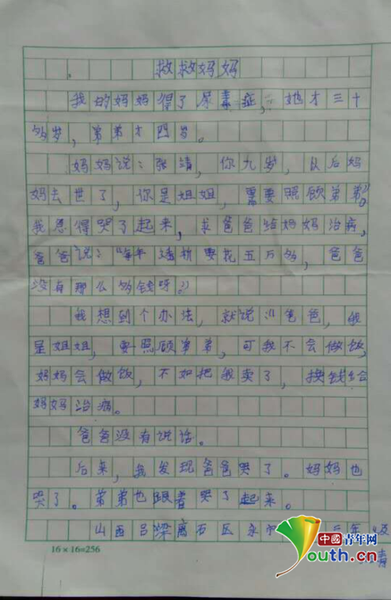 救救妈妈
我的妈妈得了尿毒症,她才三十
岁,弟弟才四岁。
妈妈说:张靖,你九岁,以后妈
妈去世了,你是姐姐,需要照顾弟弟。
我急得哭了起来,求爸爸给妈妈治病,
爸爸说:"每年透析要花五万多,爸爸
没有那么多钱呀?
我想到个办法,就说:"爸爸,我
是姐姐,要照顾弟弟,可我不会做饭,
妈妈会做饭,不如把我卖了,换钱给
妈妈治病。
爸爸没有说话。
后来,我发现爸爸哭了。妈妈也
哭了。弟弟也跟着哭了起来。
山西吕梁离石区永 三年级
16×16=256
中国青年网
Youth.cn
靖